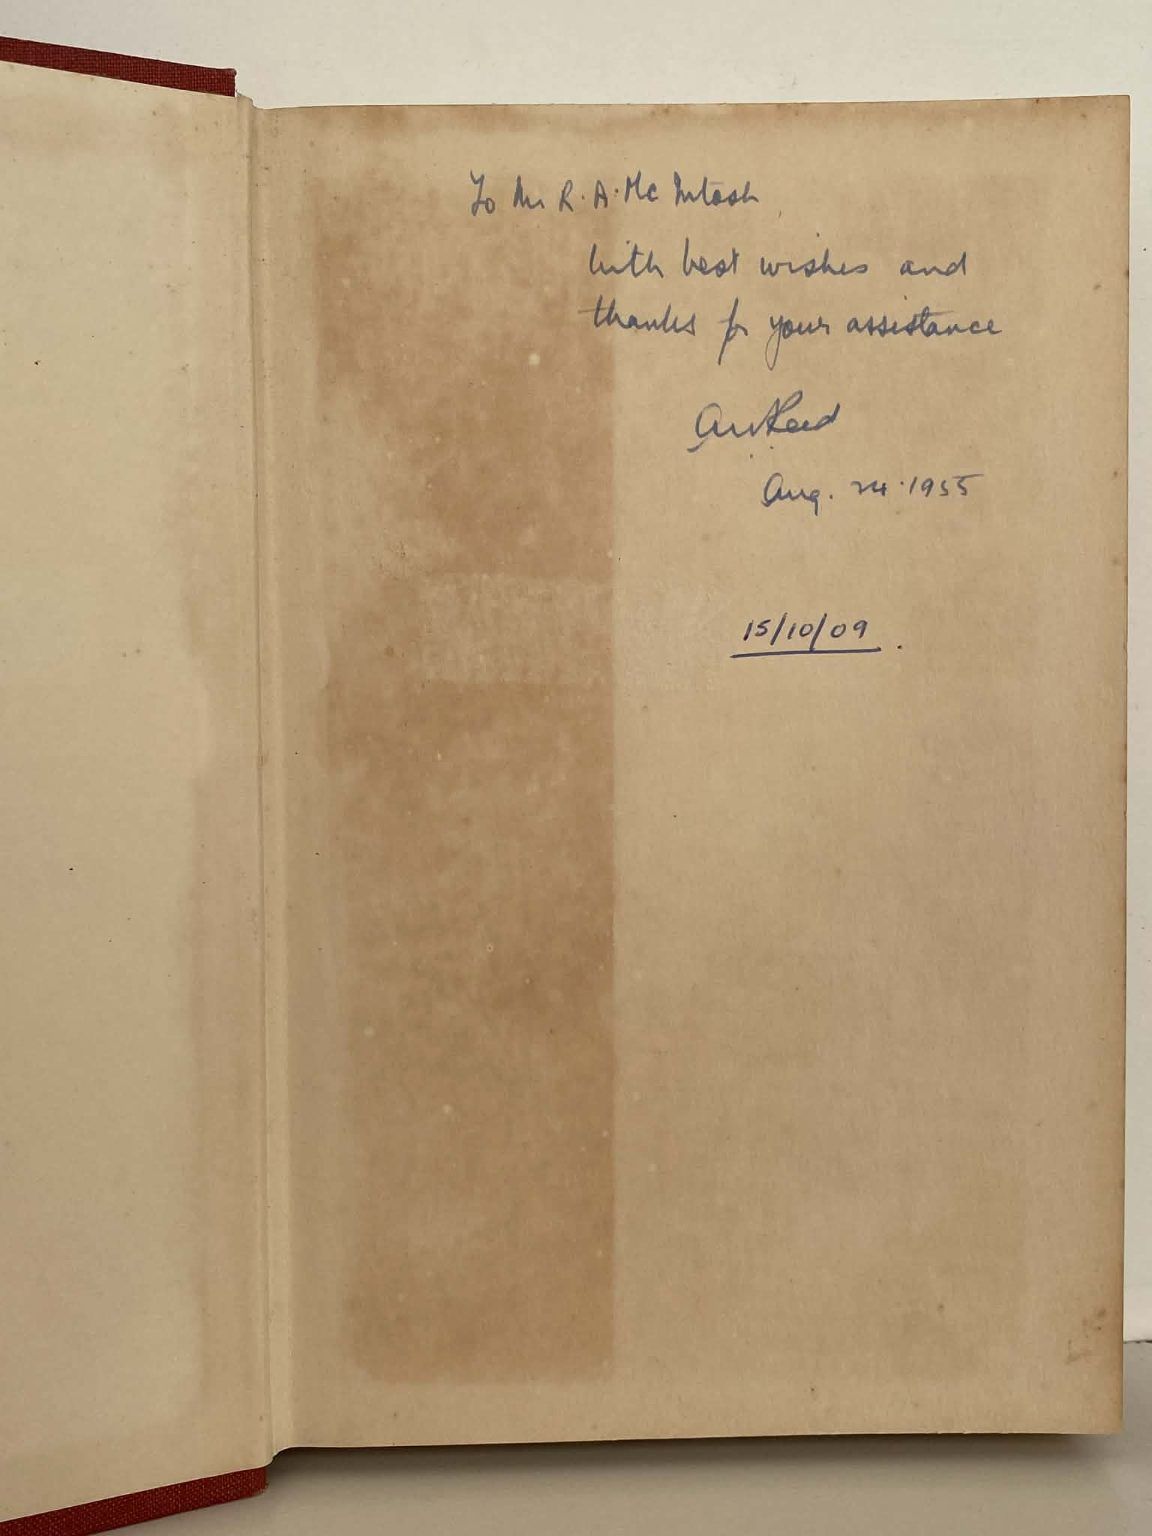 To Mr R. A. McIntosh
with best wishes and
thanks for your assistance
AWReed
Aug. 24. 1955
15/10/09.